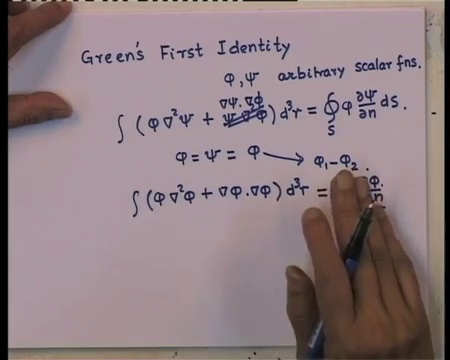 Green's First Identity
φ, ψ arbitrary scalar fns.
∇ψ.∇φ
∫ (φ ∇²ψ + ) d³r = ∮_S φ ∂ψ/∂n dS.
φ = ψ = φ → φ₁-φ₂.
∫ (φ ∇²φ + ∇φ.∇φ) d³r =